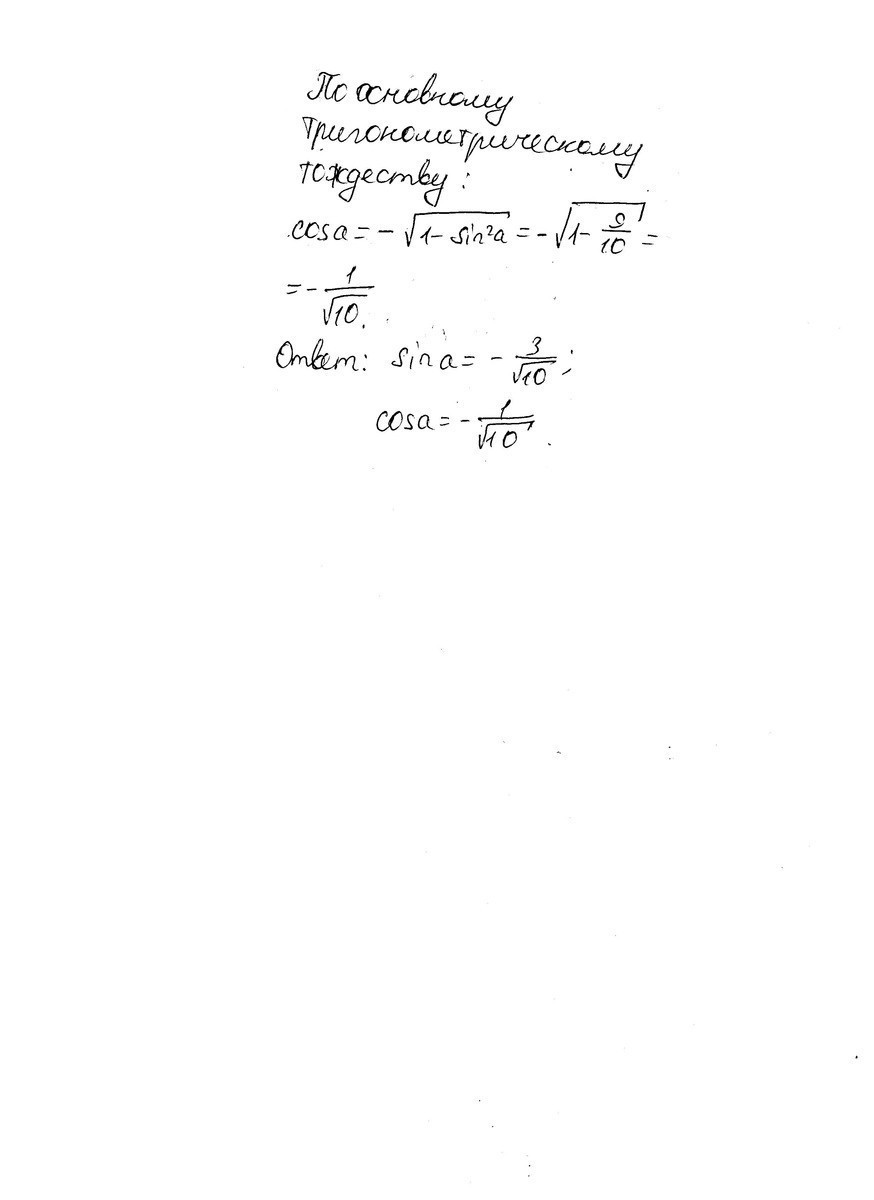 По основному
тригонометрическому
тождеству:
cos a = - √(1 - sin²a) = - √(1 - 9/10) =
= - 1/√10.
Ответ: sin a = - 3/√10;
cos a = - 1/√10.